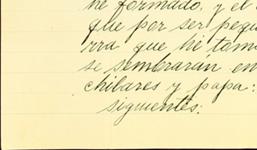 he formado, y el
que por ser pequ
rra que he tom
se sembrarán en
chibares y papa:
siguientes.